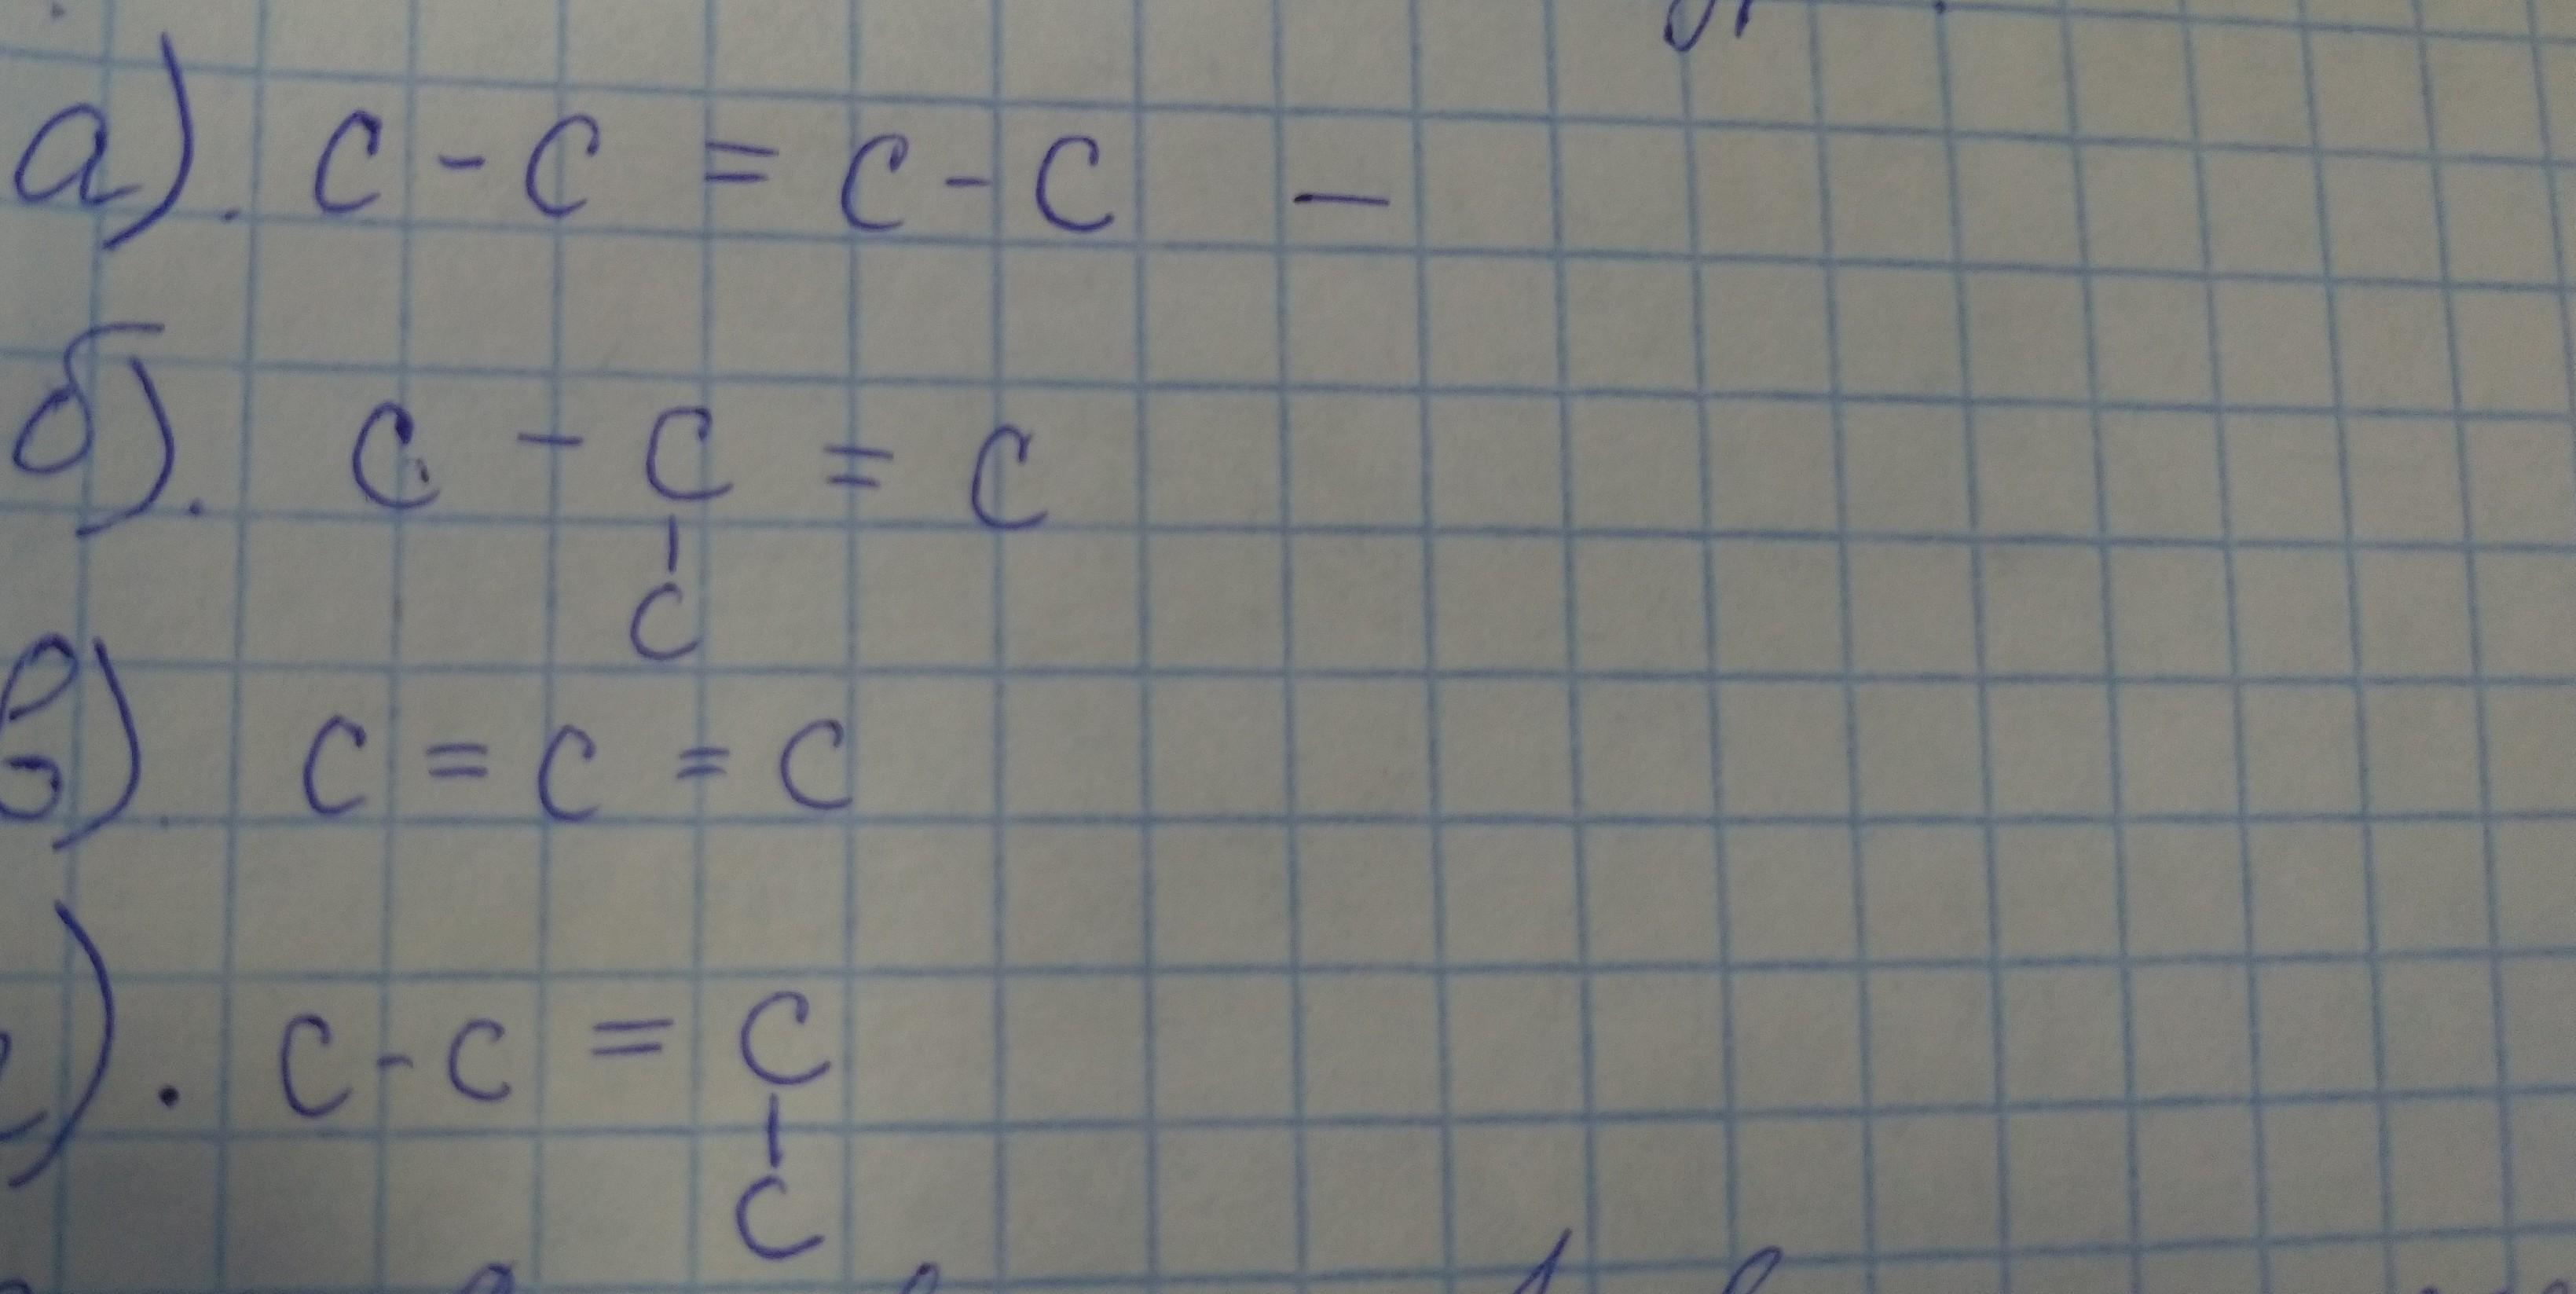 а). C - C = C - C —
б). C - C = C
|
C
в) C = C = C
г). C - C = C
|
C